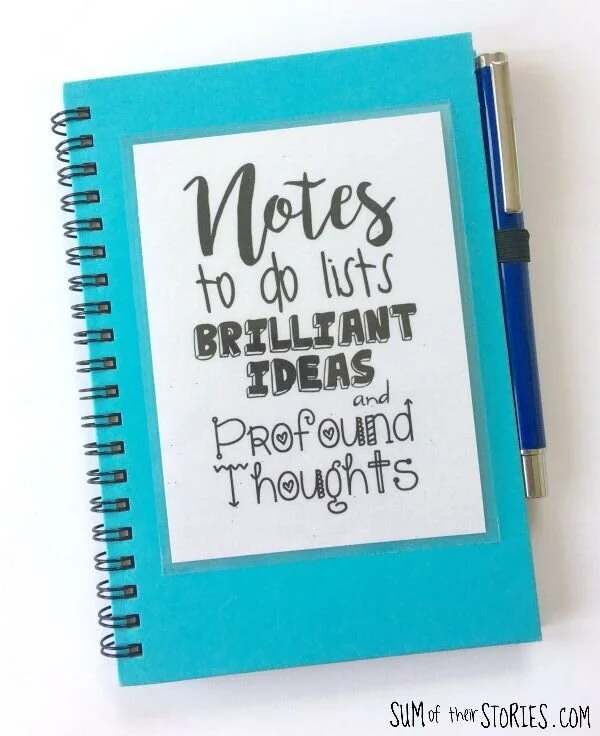 Notes
to do lists
BRILLIANT
IDEAS
and
Profound
Thoughts
SUM of their STORIES.COM